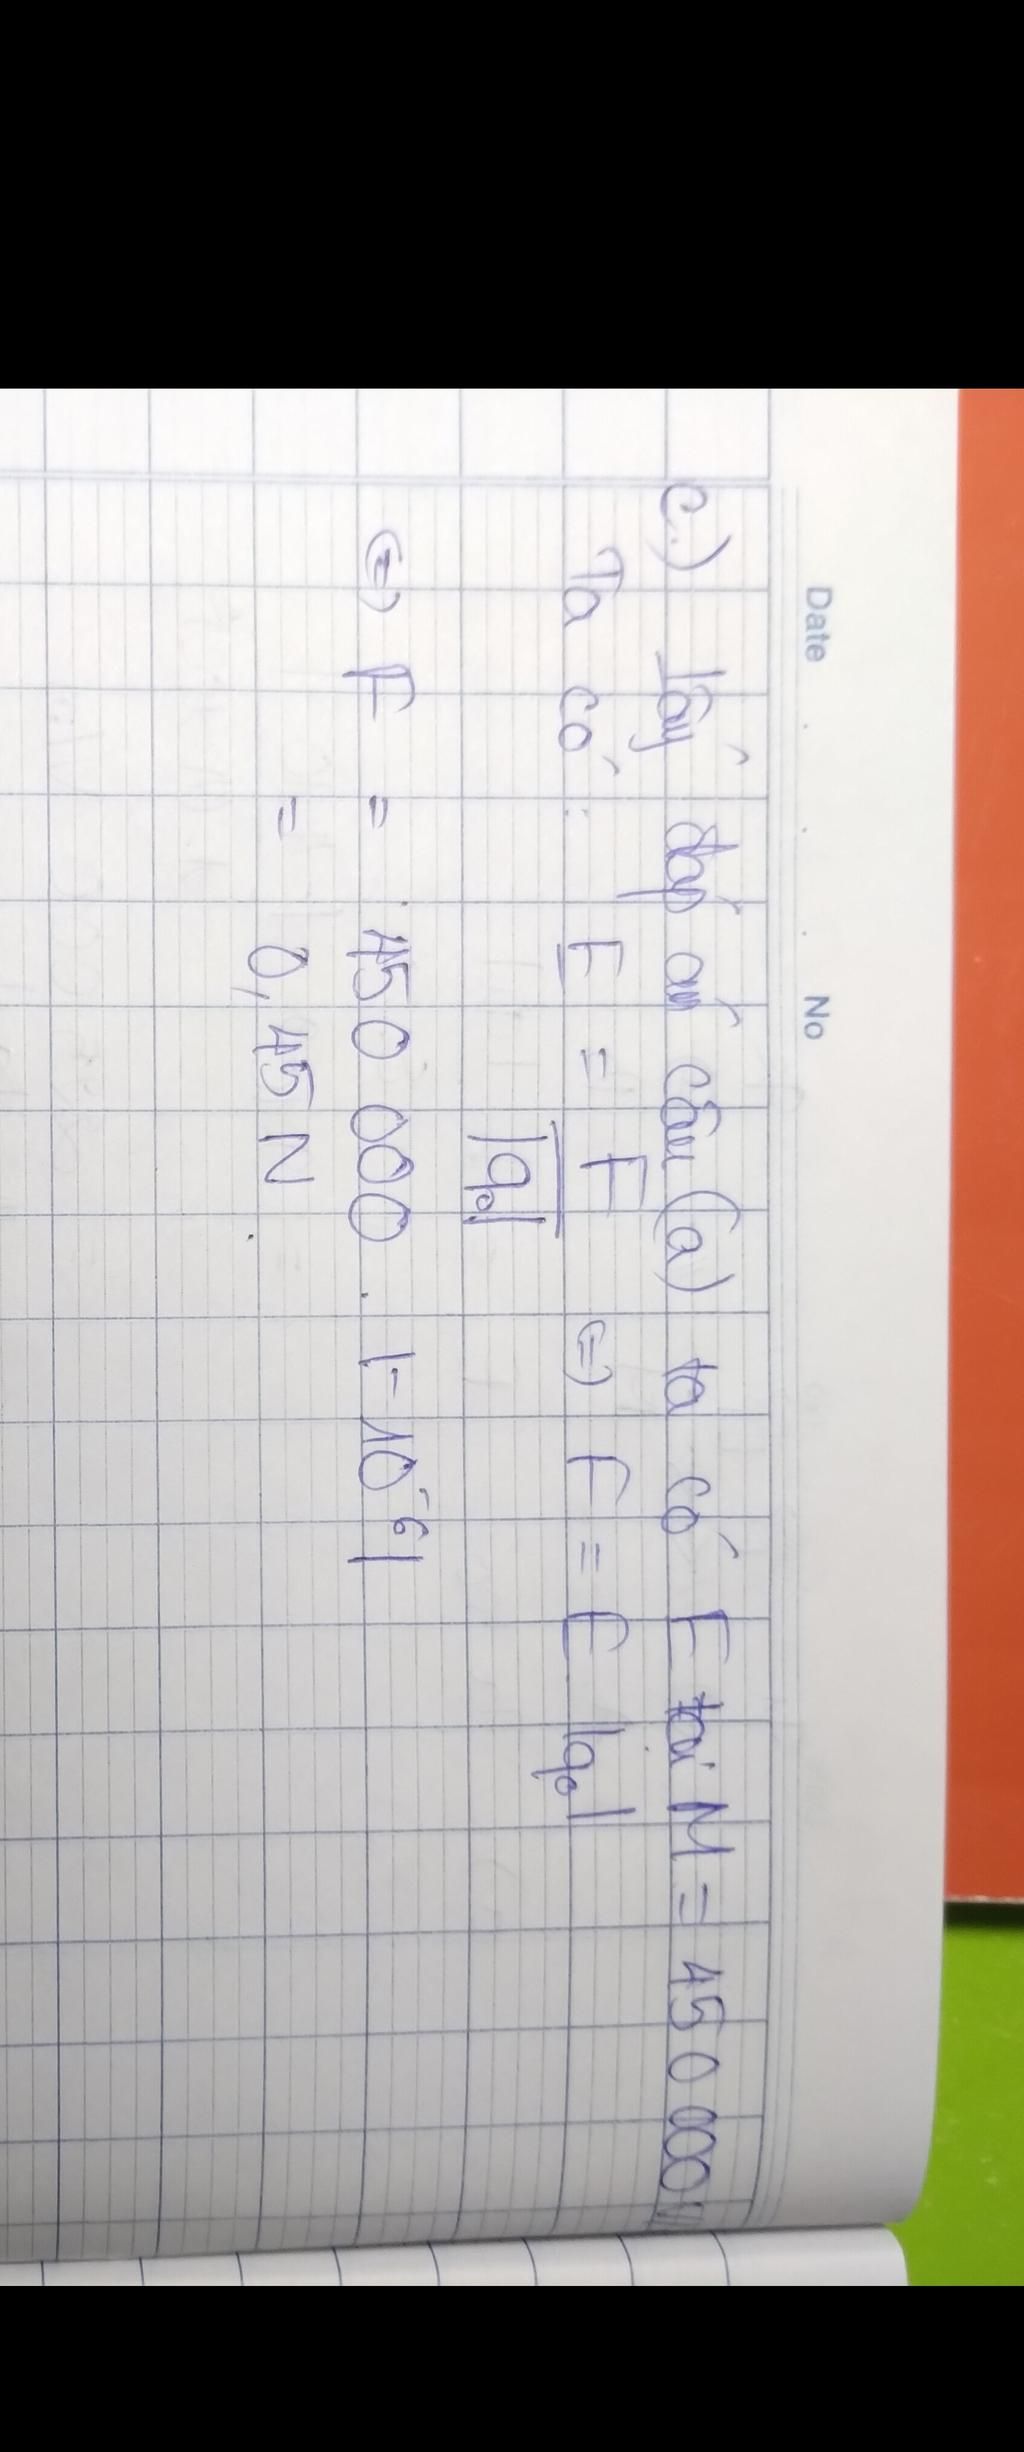 Date No
c.) Lấy đáp án câu (a) ta có E tại M = 450 000
Ta có : E = F / |q₀| ⇔ F = E . |q₀|
⇔ F = 450 000 . |-10⁻⁶|
= 0,45 N